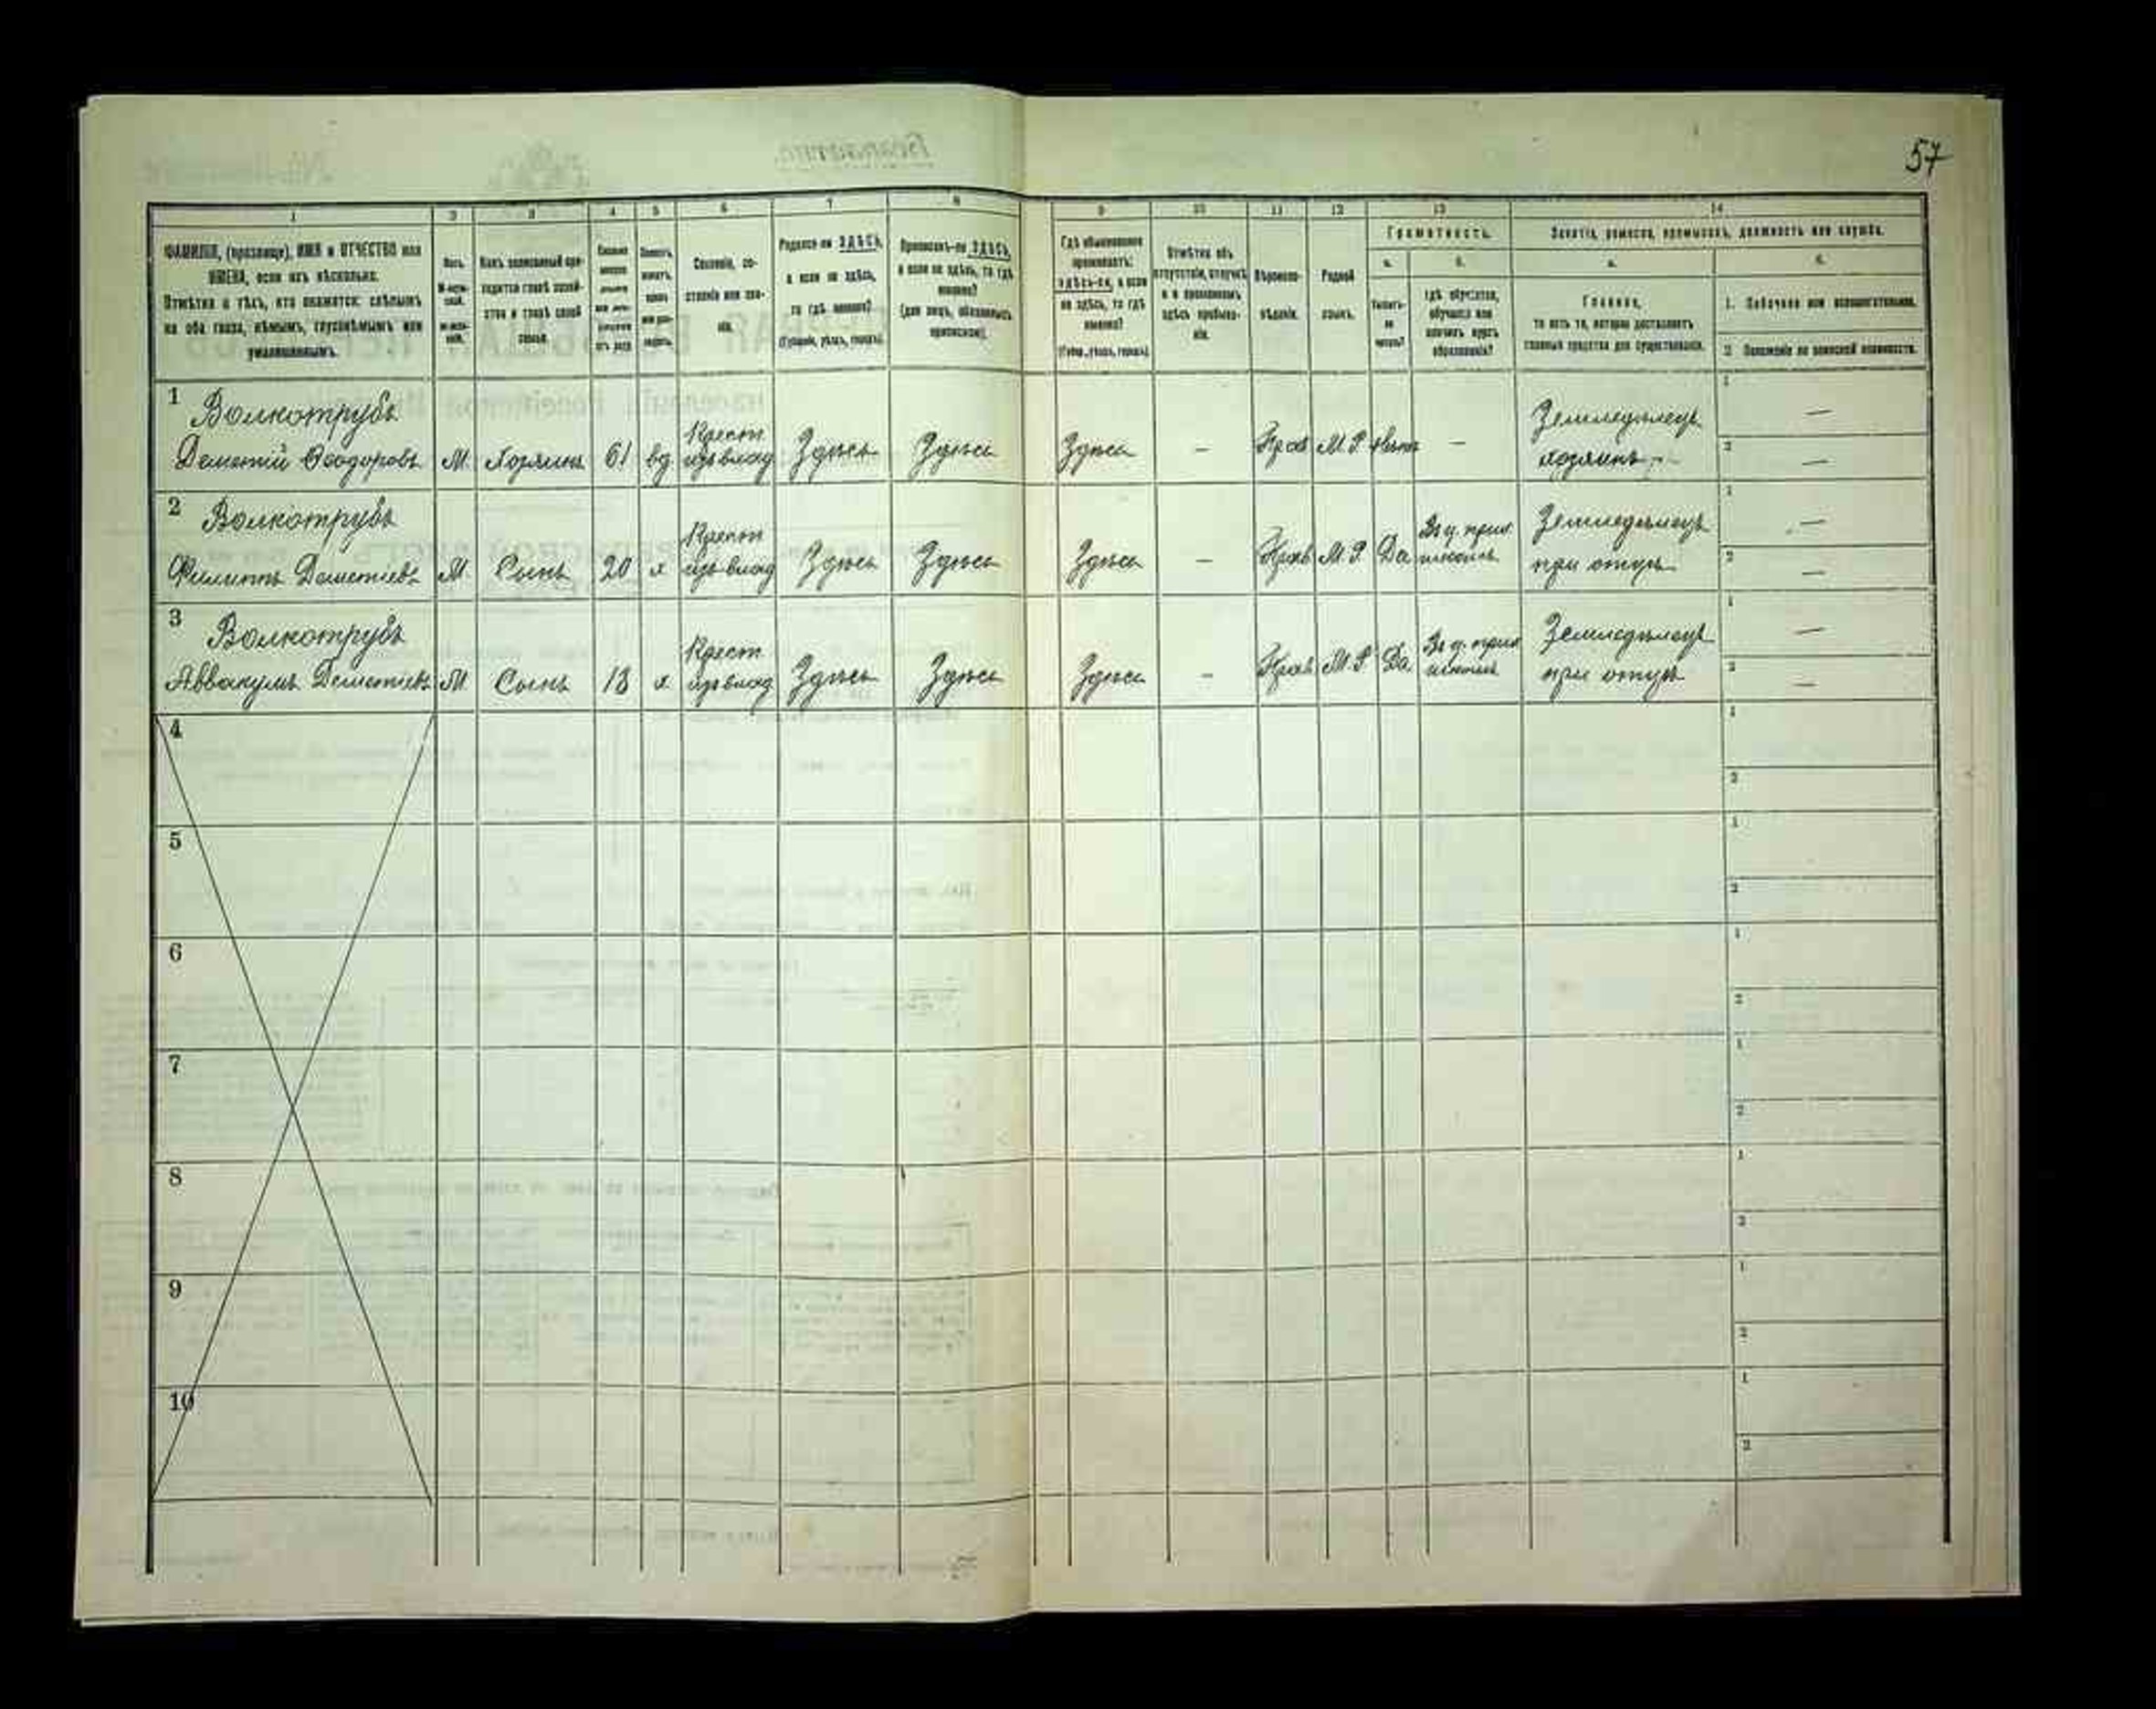 57
1 2 3 4 5 6 7 8 9 10 11 12 13 14
ФАМИЛІЯ, (прозвище), ИМЯ и ОТЧЕСТВО или
ИМЕНА, если ихъ нѣсколько.
Отмѣтка о тѣхъ, кто окажется: слѣпымъ
на оба глаза, нѣмымъ, глухонѣмымъ или
умалишеннымъ.
Полъ.
Какъ записанный при-
ходится главѣ хозяй-
ства и главѣ своей
семьи.
Сословіе, со-
стояніе или зва-
ніе.
Родился-ли ЗДѢСЬ,
а если не здѣсь,
то гдѣ именно?
(Губернія, уѣздъ, городъ).
Приписанъ-ли ЗДѢСЬ,
а если не здѣсь, то гдѣ
именно?
(для лицъ, обязанныхъ
припискою).
Гдѣ обыкновенно
проживаетъ:
здѣсь-ли, а если
не здѣсь, то гдѣ
именно?
(Губер., уѣздъ, городъ).
Отмѣтка объ
отсутствіи, отлучкѣ
и о временномъ
здѣсь пребыва-
ніи.
Вѣроиспо-
вѣданіе.
Родной
языкъ.
Грамотность.
а. б.
Умѣетъ-
ли
читать?
гдѣ обучается,
обучался или
кончилъ курсъ
образованія?
Занятіе, ремесло, промыселъ, должность или служба.
а. б.
Главное,
то есть то, которое доставляетъ
главныя средства для существованія.
1. Побочное или вспомогательное.
2. Положеніе по воинской повинности.
1 Волкотрубъ
Дементій Ѳеодоровъ М Хозяинъ 61 вд Крест изъ влад Здѣсь Здѣсь Здѣсь — Прав М.Р. Нѣтъ — Земледѣлецъ хозяинъ 1 — 2 —
2 Волкотрубъ
Филиппъ Дементіевъ М Сынъ 20 х Крест изъ влад Здѣсь Здѣсь Здѣсь — Прав М.Р. Да школѣ Земледѣлецъ при отцѣ 1 — 2 —
3 Волкотрубъ
Аввакумъ Дементіевъ М Сынъ 18 х Крест изъ влад Здѣсь Здѣсь Здѣсь — Прав М.Р. Да школѣ Земледѣлецъ при отцѣ 1 — 2 —
4 1 2
5 1 2
6 1 2
7 1 2
8 1 2
9 1 2
10 1 2